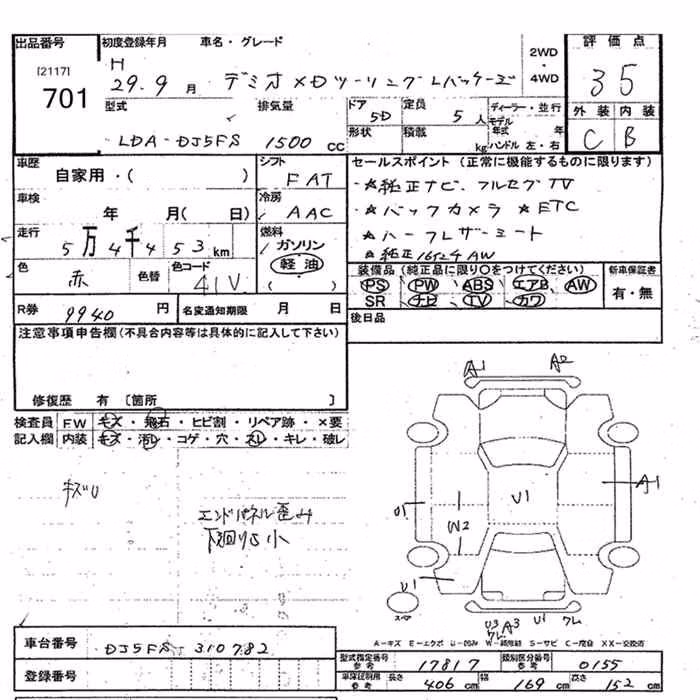 出品番号 初度登録年月 車名・グレード 評価点
[2117]
701
H 29.9 月 デミオ XDツーリングLパッケージ
2WD
・
4WD
35
型式 排気量 ドア 5D 定員 5人 ディーラー・並行
外装 内装
LDA-DJ5FS 1500cc 形状 積載 kg モデル年式 年
ハンドル 左・右
C B
車歴 自家用・( ) シフト FAT
セールスポイント (正常に機能するものに限ります)
★純正ナビ フルセグTV
車検 年 月(日) 冷房 AAC
★バックカメラ ★ETC
走行 5万4千453km 燃料 ガソリン 軽油 ( )
★ハーフレザーシート
★純正16インチAW
色 赤 色替 色コード 41V
装備品 (純正品に限り○をつけてください) 新車保証書
PS PW ABS エアB AW 有・無
SR ナビ TV カワ
R券 9940円 名変通知期限 月 日
後日品
注意事項申告欄(不具合内容等は具体的に記入して下さい)
修復歴 有 [箇所 ]
検査員 FW キズ・飛石・ヒビ割・リペア跡・×要
記入欄 内装 キズ・汚レ・コゲ・穴・スレ・キレ・破レ
キズU
エンドパネル歪み
下廻りS小
A1 A2
A1
U1
W2
U1
U3 A3 U1 クレ
クレ
A-キズ E-エクボ U-凹み W-補修跡 S-サビ C-腐食 XX-交換済
車台番号 DJ5FS-310782
型式指定番号 参考 17817 類別区分番号 参考 0155
登録番号
車庫証明用 参考 長さ 406cm 幅 169cm 高さ 152cm